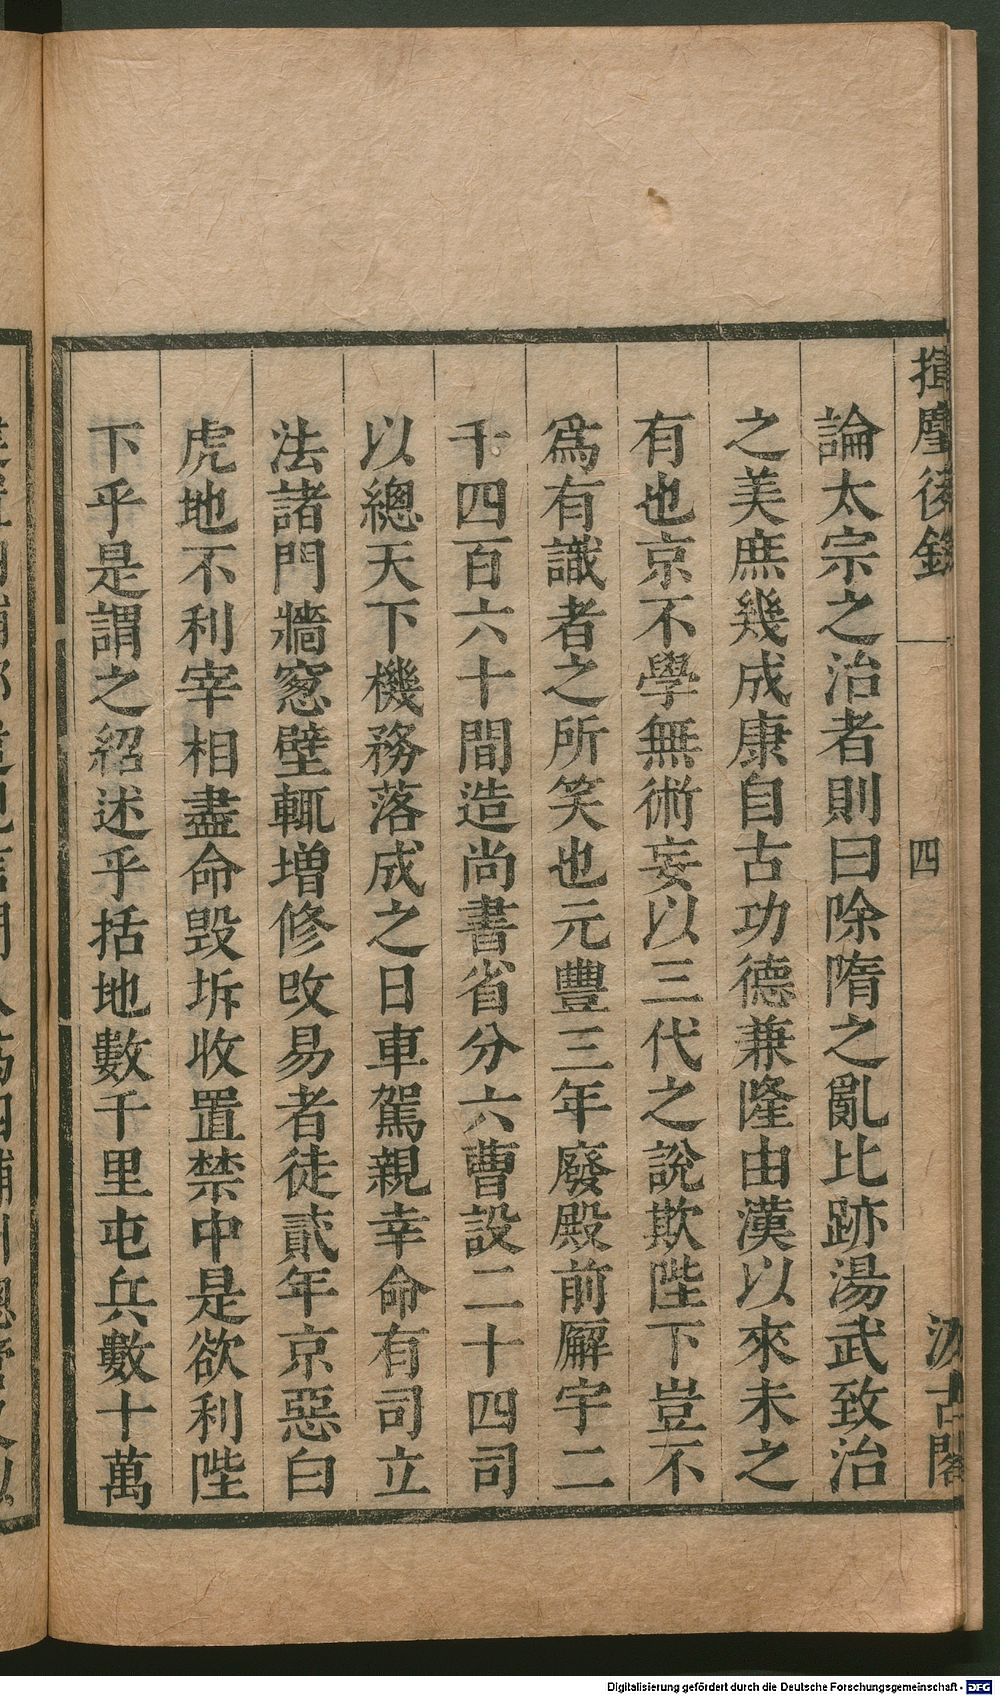 揮麈後錄
四
汲古閣
論太宗之治者則曰除隋之亂比跡湯武致治
之美庶幾成康自古功德兼隆由漢以來未之
有也京不學無術妄以三代之說欺陛下豈不
爲有識者之所笑也元豐三年廢殿前廨宇二
千四百六十間造尚書省分六曹設二十四司
以總天下機務落成之日車駕親幸命有司立
法諸門牆窻壁輒增修改易者徒貳年京惡白
虎地不利宰相盡命毀坼收置禁中是欲利陛
下乎是謂之紹述乎括地數千里屯兵數十萬
Digitalisierung gefördert durch die Deutsche Forschungsgemeinschaft - DFG